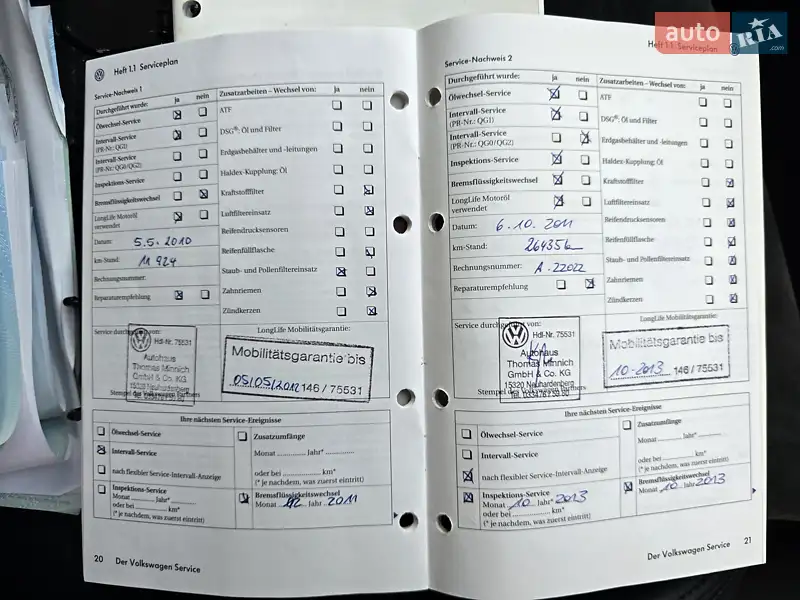 auto RIA.com
Heft 1.1 Serviceplan
Service-Nachweis 1
Durchgeführt wurde: ja nein
Ölwechsel-Service
Intervall-Service
(PR-Nr.: QG1)
Intervall-Service
(PR-Nr.: QG0/QG2)
Inspektions-Service
Bremsflüssigkeitswechsel
LongLife Motoröl
verwendet
Datum: 5.5.2010
km-Stand: 11 924
Rechnungsnummer:
Reparaturempfehlung
Zusatzarbeiten – Wechsel von: ja nein
ATF
DSG®: Öl und Filter
Erdgasbehälter und -leitungen
Haldex-Kupplung: Öl
Kraftstofffilter
Luftfiltereinsatz
Reifendrucksensoren
Reifenfüllflasche
Staub- und Pollenfiltereinsatz
Zahnriemen
Zündkerzen
Service durchgeführt von:
Hdl-Nr. 75531
Autohaus
Thomas Minnich
GmbH & Co. KG
15320 Neuhardenberg
Stempel des Volkswagen Partners
LongLife Mobilitätsgarantie:
Mobilitätsgarantie bis
05/05/2012 146 / 75531
Ihre nächsten Service-Ereignisse
Ölwechsel-Service
Intervall-Service
nach flexibler Service-Intervall-Anzeige
Inspektions-Service
Monat Jahr*
oder bei km*
(* je nachdem, was zuerst eintritt)
Zusatzumfänge
Monat Jahr*
oder bei km*
(* je nachdem, was zuerst eintritt)
Bremsflüssigkeitswechsel
Monat Jahr 2011
20 Der Volkswagen Service
Heft 1.1 Serviceplan
Service-Nachweis 2
Durchgeführt wurde: ja nein
Ölwechsel-Service
Intervall-Service
(PR-Nr.: QG1)
Intervall-Service
(PR-Nr.: QG0/QG2)
Inspektions-Service
Bremsflüssigkeitswechsel
LongLife Motoröl
verwendet
Datum: 6.10.2011
km-Stand: 264356
Rechnungsnummer: A-22022
Reparaturempfehlung
Zusatzarbeiten – Wechsel von: ja nein
ATF
DSG®: Öl und Filter
Erdgasbehälter und -leitungen
Haldex-Kupplung: Öl
Kraftstofffilter
Luftfiltereinsatz
Reifendrucksensoren
Reifenfüllflasche
Staub- und Pollenfiltereinsatz
Zahnriemen
Zündkerzen
Service durchgeführt von:
Hdl-Nr. 75531
Autohaus
Thomas Minnich
GmbH & Co. KG
15320 Neuhardenberg
Stempel des Volkswagen Partners
LongLife Mobilitätsgarantie:
Mobilitätsgarantie bis
10-2013 146 / 75531
Ihre nächsten Service-Ereignisse
Ölwechsel-Service
Intervall-Service
nach flexibler Service-Intervall-Anzeige
Inspektions-Service
Monat 10 Jahr* 2013
oder bei km*
(* je nachdem, was zuerst eintritt)
Zusatzumfänge
Monat Jahr*
oder bei km*
(* je nachdem, was zuerst eintritt)
Bremsflüssigkeitswechsel
Monat 10 Jahr 2013
Der Volkswagen Service 21